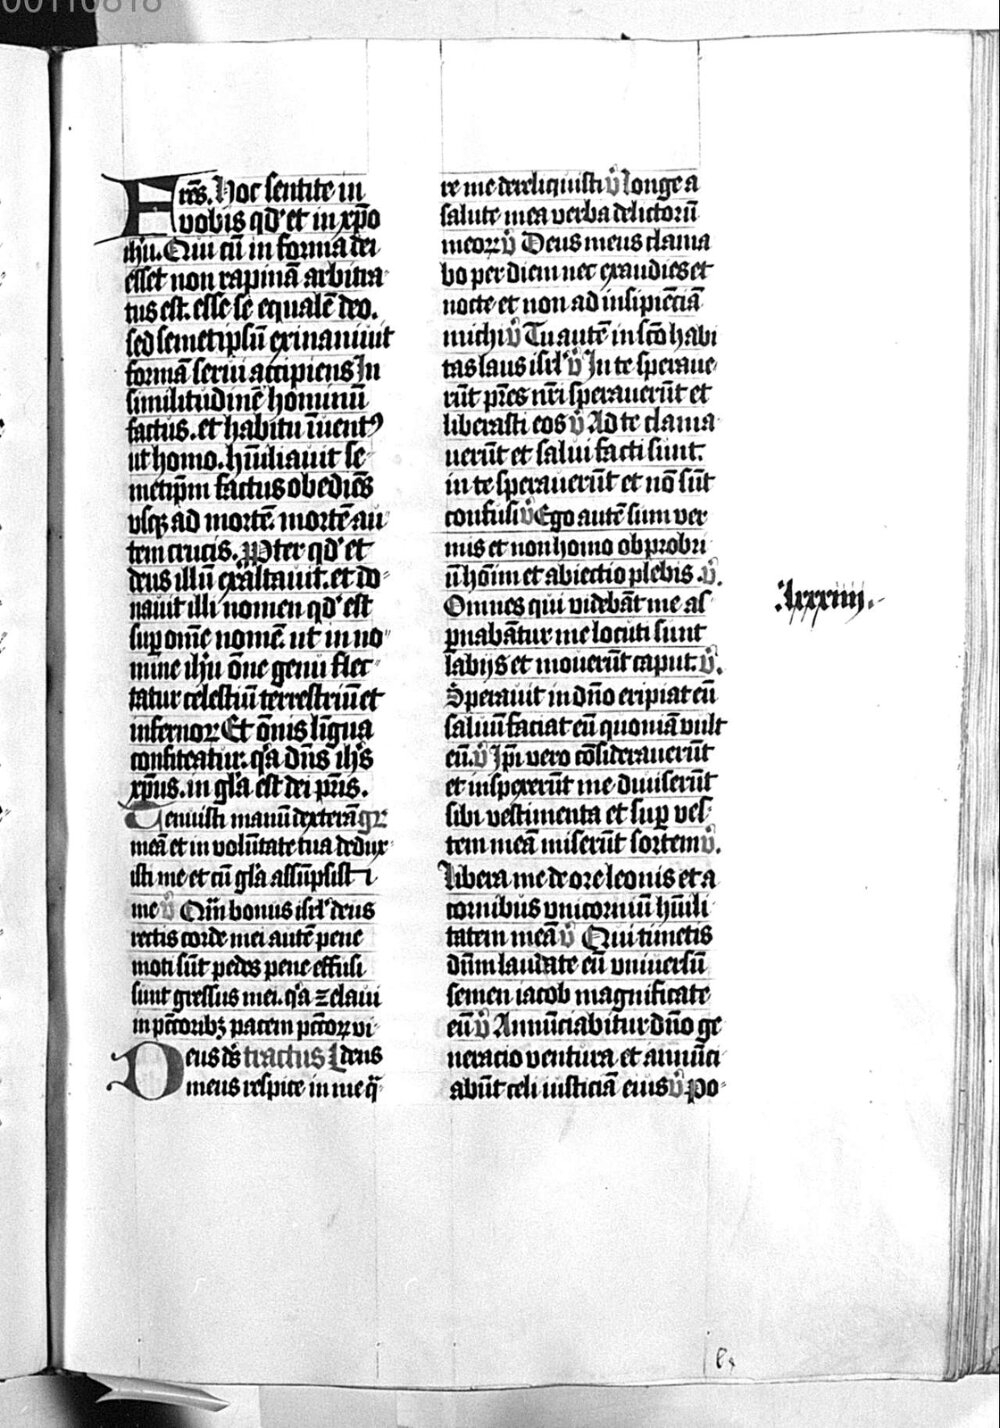 00116818
Fres. Hoc sentite in
vobis qd' et in xp̄o
ih̄u. Qui cū in forma dei
esset non rapinā arbitra
tus est. esse se equalē deo.
sed semetip̄sū exinaniuit
formā serui accipiens In
similitudinē hominū
factus. et habitu īuentꝰ
ut homo. hūiliauit se
metip̄m factus obediēs
vsqꝫ ad mortē. mortē au
tem crucis. ꝓpter qd' et
deus illū exaltauit. et do
nauit illi nomen qd' est
suꝑ om̄e nomē. ut in no
mine ih̄u ōne genu flec
tatur celestiū terrestriū et
infernoꝝ Et ōnis līgua
confiteatur. q'a dn̄s ih̄s
xp̄us. in gl'a est dei pr̄is.
Tenuisti manū dexterā gr̄
meā et in volūtate tua dedux
isti me et cū gl'a assūpsist i
me v̊ Qm̄ bonus isrl' deus
rectis corde mei autē pene
moti sūt pedes pene effusi
sunt gressus mei. q'a zelaui
in pctōribꝫ pacem pctōꝝ vi
Deus ds̄ tractus Deus
meus respice in me q̄
re me dereliquisti v̊ longe a
salute mea verba delictorū
meoꝝ v̊ Deus meus clama
bo per diem nec exaudies et
nocte et non ad insipiēciā
michi v̊ Tu autē in scō habi
tas laus isrl' v̊ In te speraue
rūt pr̄es nr̄i sperauerūt et
liberasti eos v̊ Ad te clama
uerūt et salui facti sunt.
in te sperauerūt et nō sūt
confusi v̊ Ego autē sum ver
mis et non homo obprobri
ū hōim et abiectio plebis. v̊.
Omnes qui videbāt me as
pnabātur me locuti sunt
labijs et mouerūt caput. v̊.
Sperauit in dn̄o eripiat eū
saluū faciat eū quoniā vult
eū. v̊ Ip̄i vero cōsiderauerūt
et inspexerūt me diuiserūt
sibi vestimenta et suꝑ ves
tem meā miserūt sortem v̊.
Libera me de ore leonis et a
cornibus vnicorniū hūili
tatem meā v̊ Qui timetis
dūm laudate eū vniuersū
semen iacob magnificate
eū v̊ Annūciabitur dn̄o ge
neracio ventura et annūci
abūt celi iusticiā eius v̊ po
.lxxxiiij.